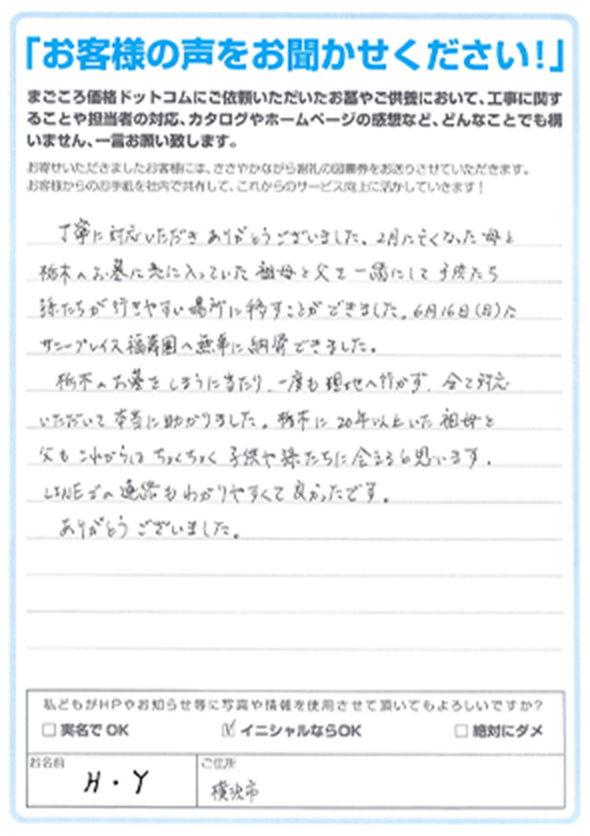 「お客様の声をお聞かせください！」
まごころ価格ドットコムにご依頼いただいたお墓やご供養において、工事に関す
ることや担当者の対応、カタログやホームページの感想など、どんなことでも構
いません、一言お願い致します。
お寄せいただきましたお客様には、ささやかながら謝礼の図書券をお送りさせていただきます。
お客様からのお手紙を社内で共有して、これからのサービス向上に活かしていきます！
丁寧に対応いただき ありがとうございました。2月に亡くなった母と
栃木のお墓に先に入っていた 祖母と父を一緒にして 子供たち
孫たちが行きやすい場所に移すことができました。6月16日(日)に
サニープレイス福寿園へ無事に納骨できました。
栃木のお墓をしまうに当たり、一度も現地へ行かず、全て対応
いただいて 本当に助かりました。栃木に20年以上いた 祖母と
父も これからは ちょくちょく 子供や孫たちに会えると思います。
LINEでの連絡もわかりやすくて良かったです。
ありがとうございました。
私どもがHPやお知らせ等に写真や情報を使用させて頂いてもよろしいですか？
□ 実名で OK ☑ イニシャルならOK □ 絶対にダメ
お名前 ご住所
H・Y 横浜市